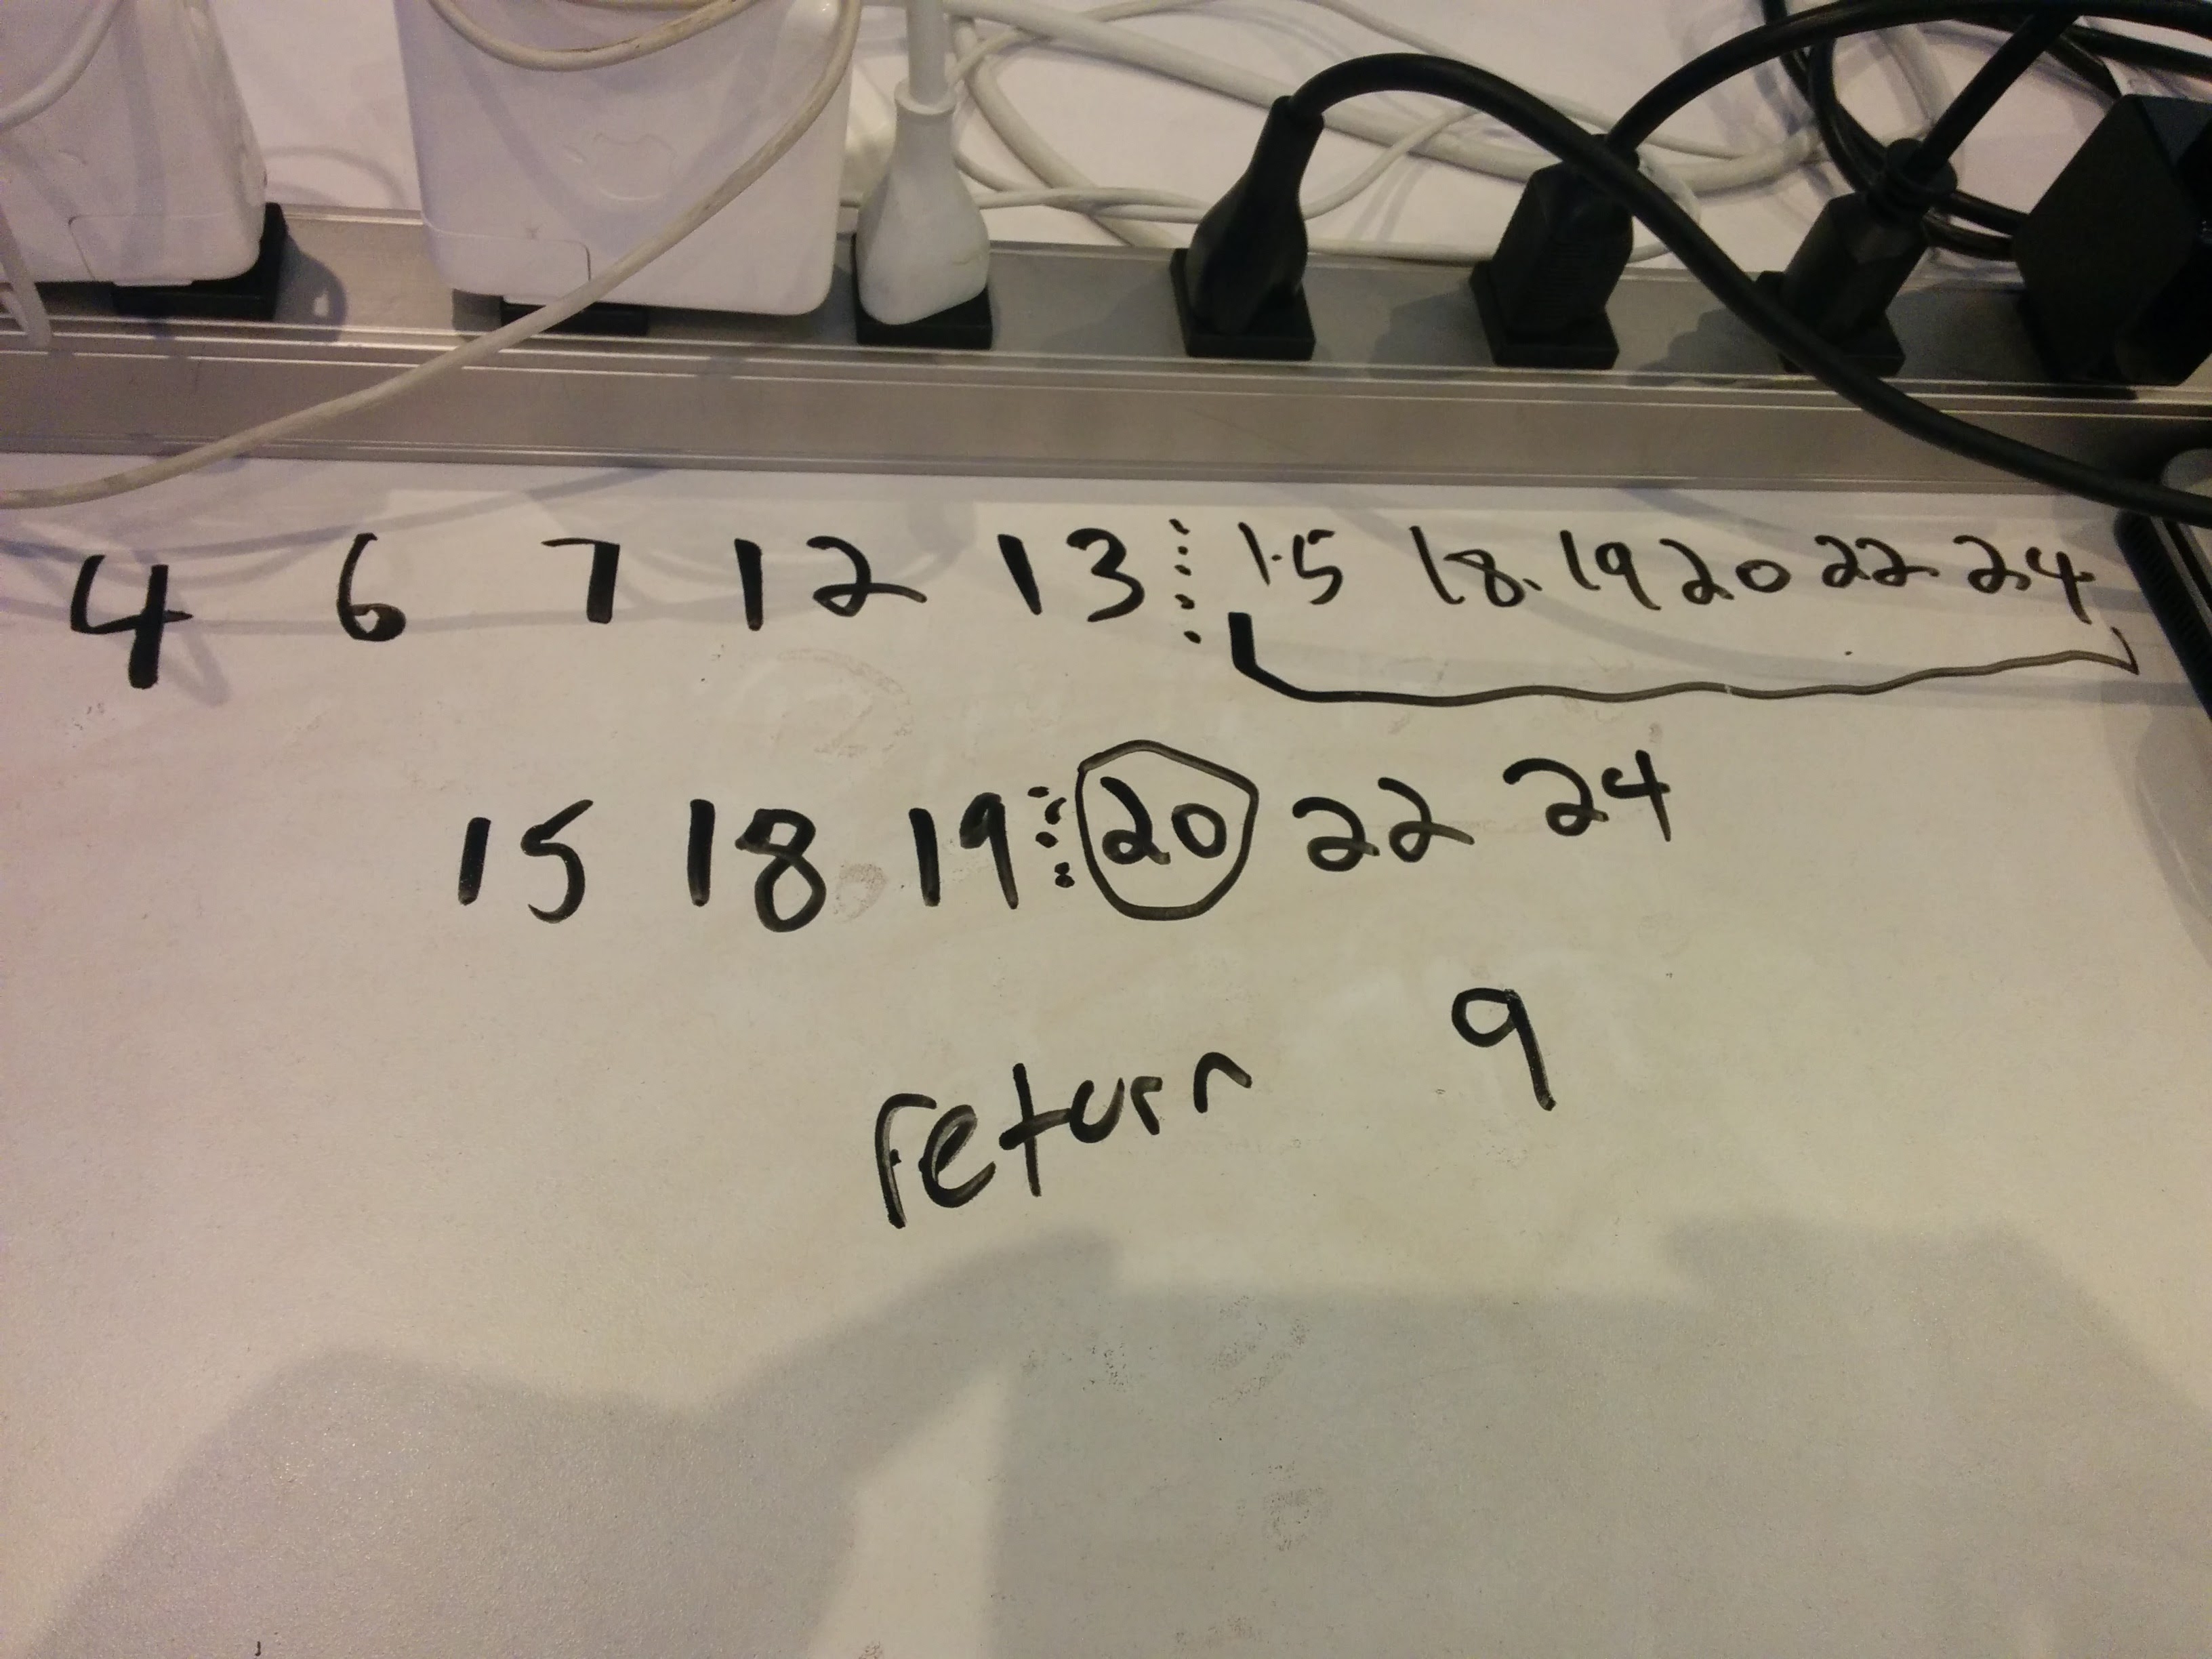 4 6 7 12 13 15 18 19 20 22 24
15 18 19 20 22 24
return 9